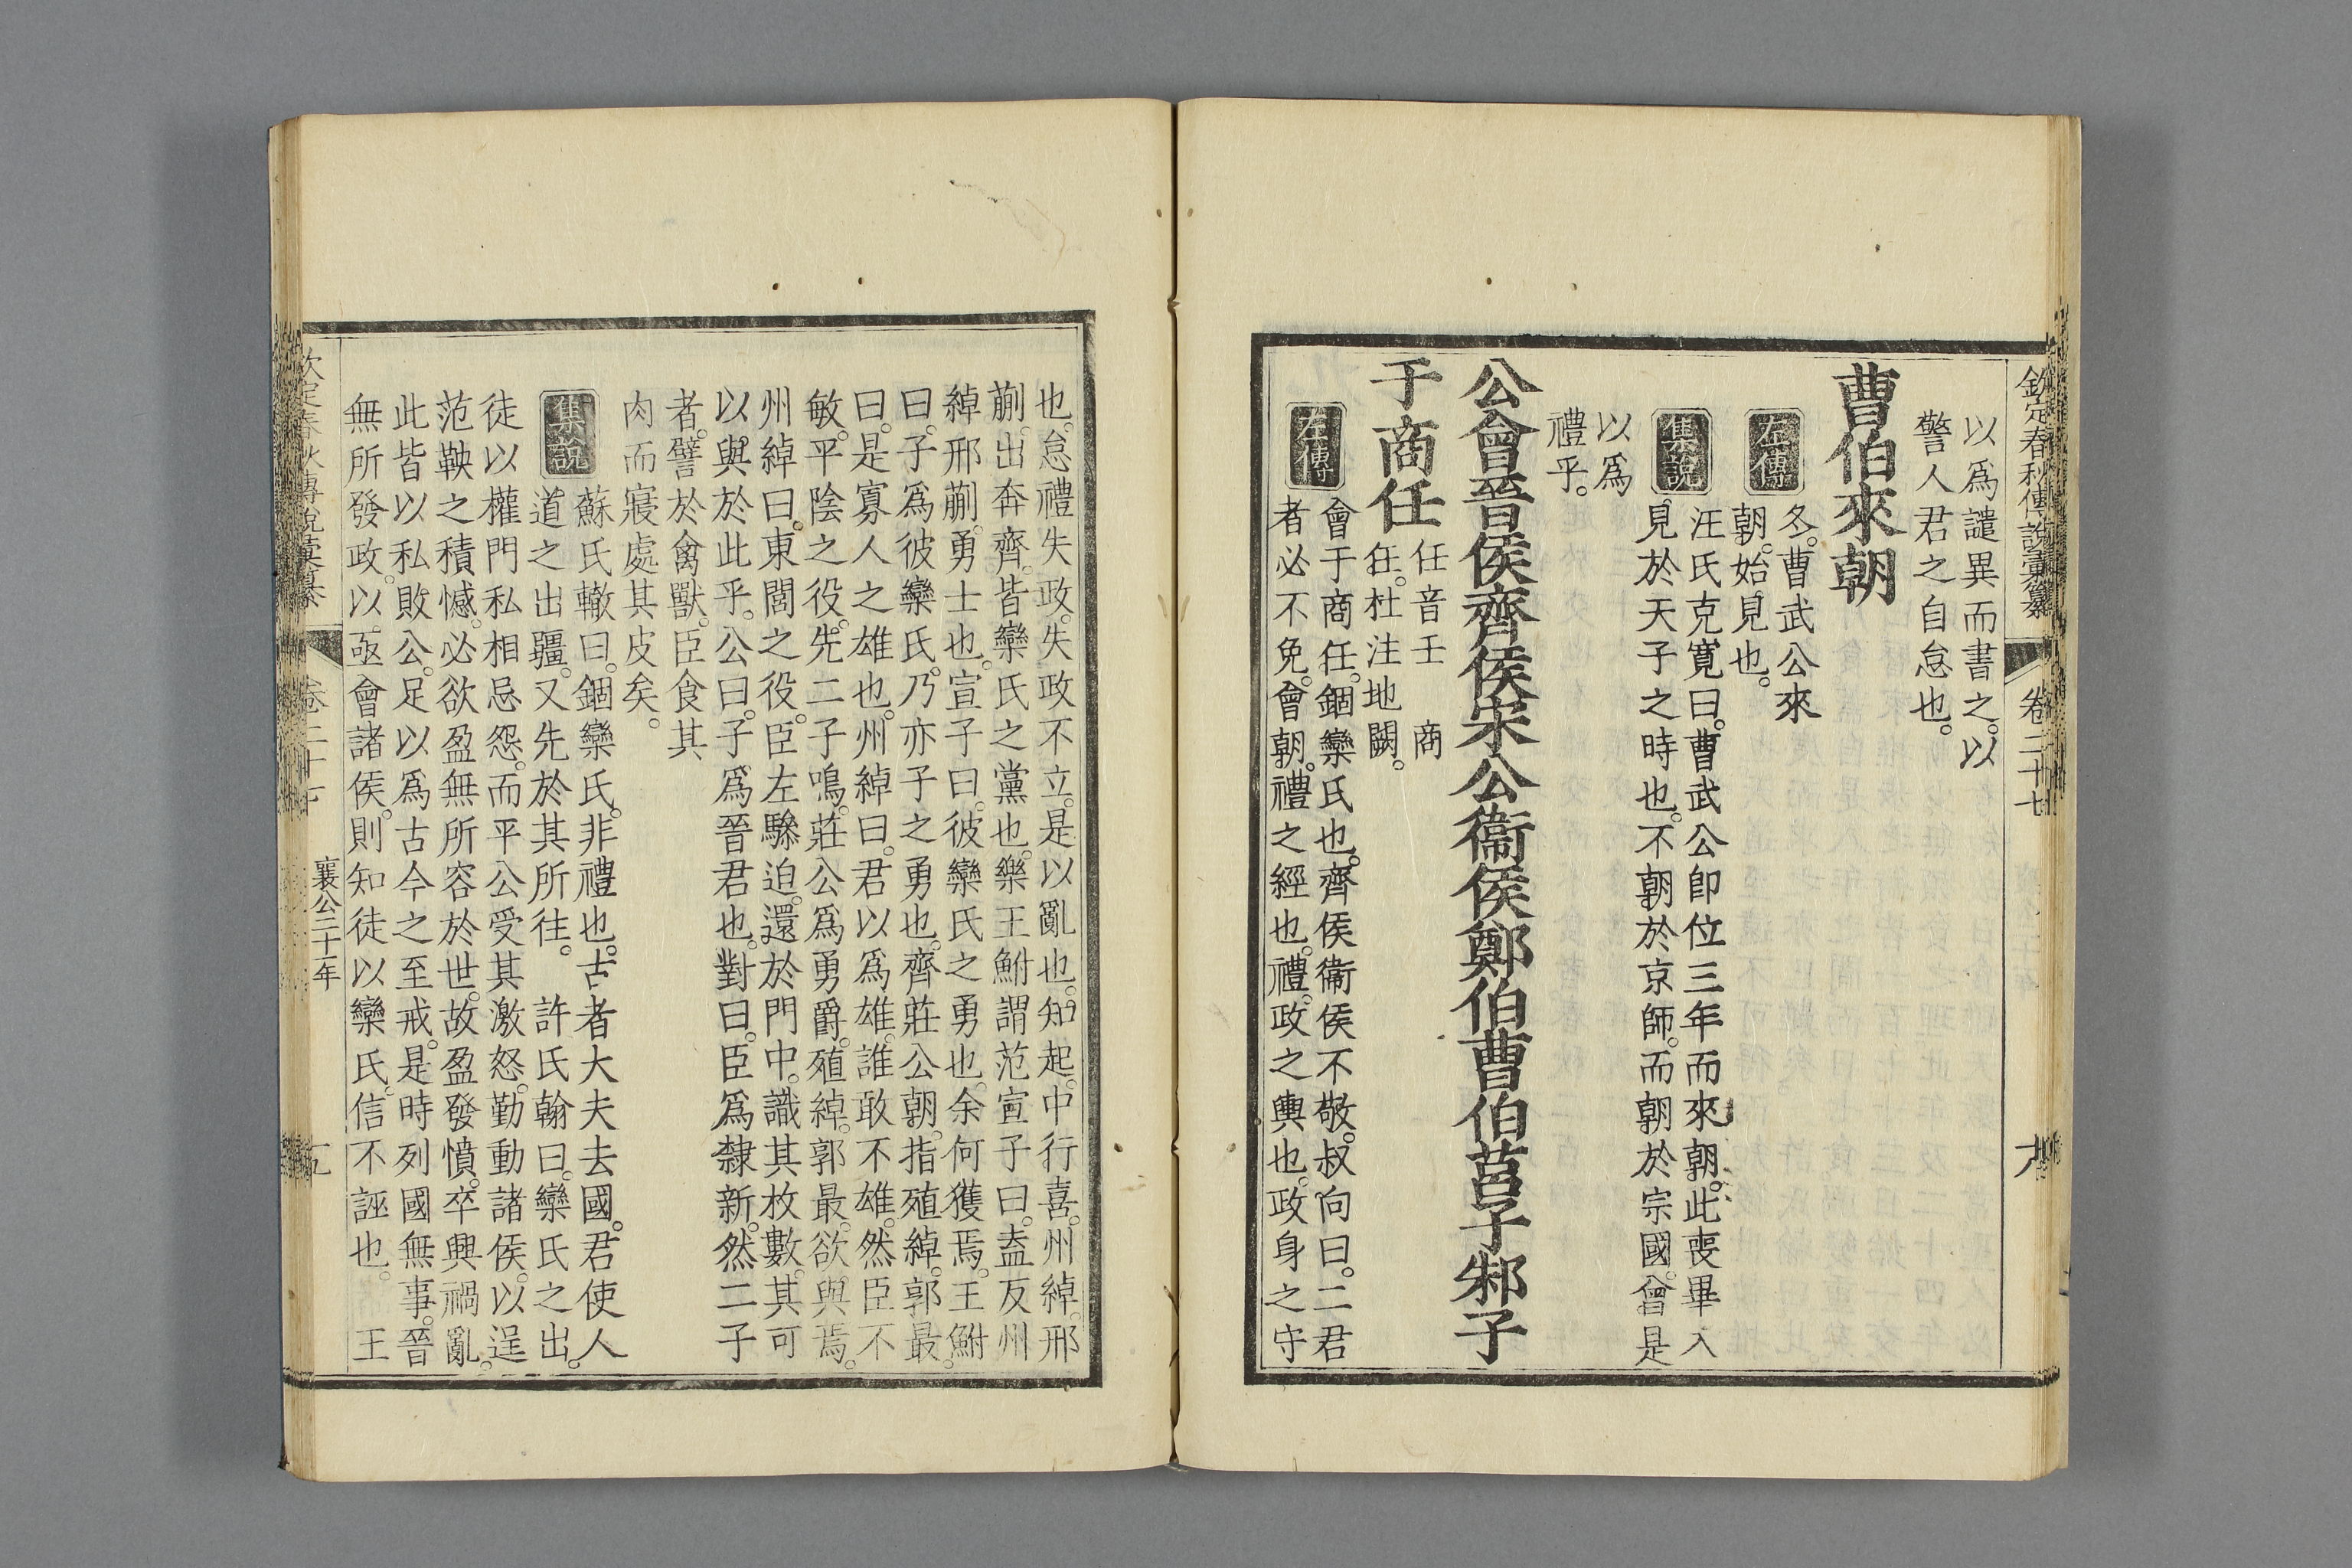 欽定春秋傳說彙纂 卷二十七
以爲譴異而書之。以
警人君之自怠也。
曹伯來朝
左傳
冬。曹武公來
朝。始見也。
集說
汪氏克寬曰。曹武公卽位三年而來朝。此喪畢入
見於天子之時也。不朝於京師。而朝於宗國。曾是
以爲
禮乎。
公會晉侯齊侯宋公衞侯鄭伯曹伯莒子邾子
于商任
任音壬 商
任。杜注地闕。
左傳
會于商任。錮欒氏也。齊侯衞侯不敬。叔向曰。二君
者必不免。會朝。禮之經也。禮。政之輿也。政。身之守
也。怠禮失政。失政不立。是以亂也。知起。中行喜。州綽。邢
蒯。出奔齊。皆欒氏之黨也。樂王鮒謂范宣子曰。盍反州
綽邢蒯。勇士也。宣子曰。彼欒氏之勇也。余何獲焉。王鮒
曰。子爲彼欒氏。乃亦子之勇也。齊莊公朝。指殖綽。郭最。
曰。是寡人之雄也。州綽曰。君以爲雄。誰敢不雄。然臣不
敏。平陰之役。先二子鳴。莊公爲勇爵。殖綽。郭最。欲與焉。
州綽曰。東閭之役。臣左驂迫。還於門中。識其枚數。其可
以與於此乎。公曰。子爲晉君也。對曰。臣爲隸新。然二子
者。譬於禽獸。臣食其
肉而寢處其皮矣。
集說
蘇氏轍曰。錮欒氏。非禮也。古者大夫去國。君使人
道之出疆。又先於其所往。 許氏翰曰。欒氏之出。
徒以權門私相忌怨。而平公受其激怒。勤動諸侯。以逞
范鞅之積憾。必欲盈無所容於世。故盈發憤。卒興禍亂。
此皆以私敗公。足以爲古今之至戒。是時列國無事。晉
無所發政。以亟會諸侯。則知徒以欒氏。信不誣也。 王
欽定春秋傳說彙纂 卷二十七 襄公二十一年